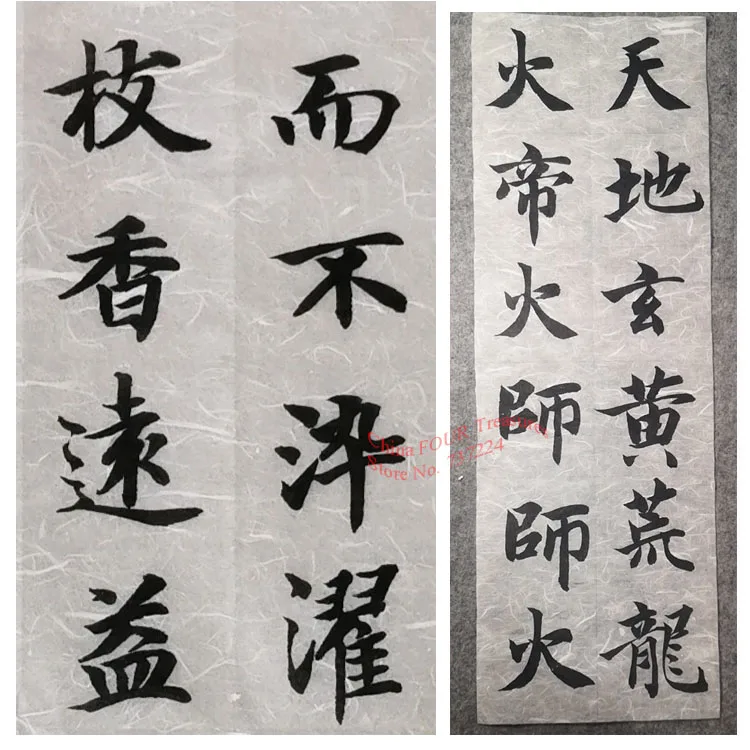 而不染濯
枝香遠益
天地玄黄荒龍
火帝火師師火
China FOUR Treasures
Store No.